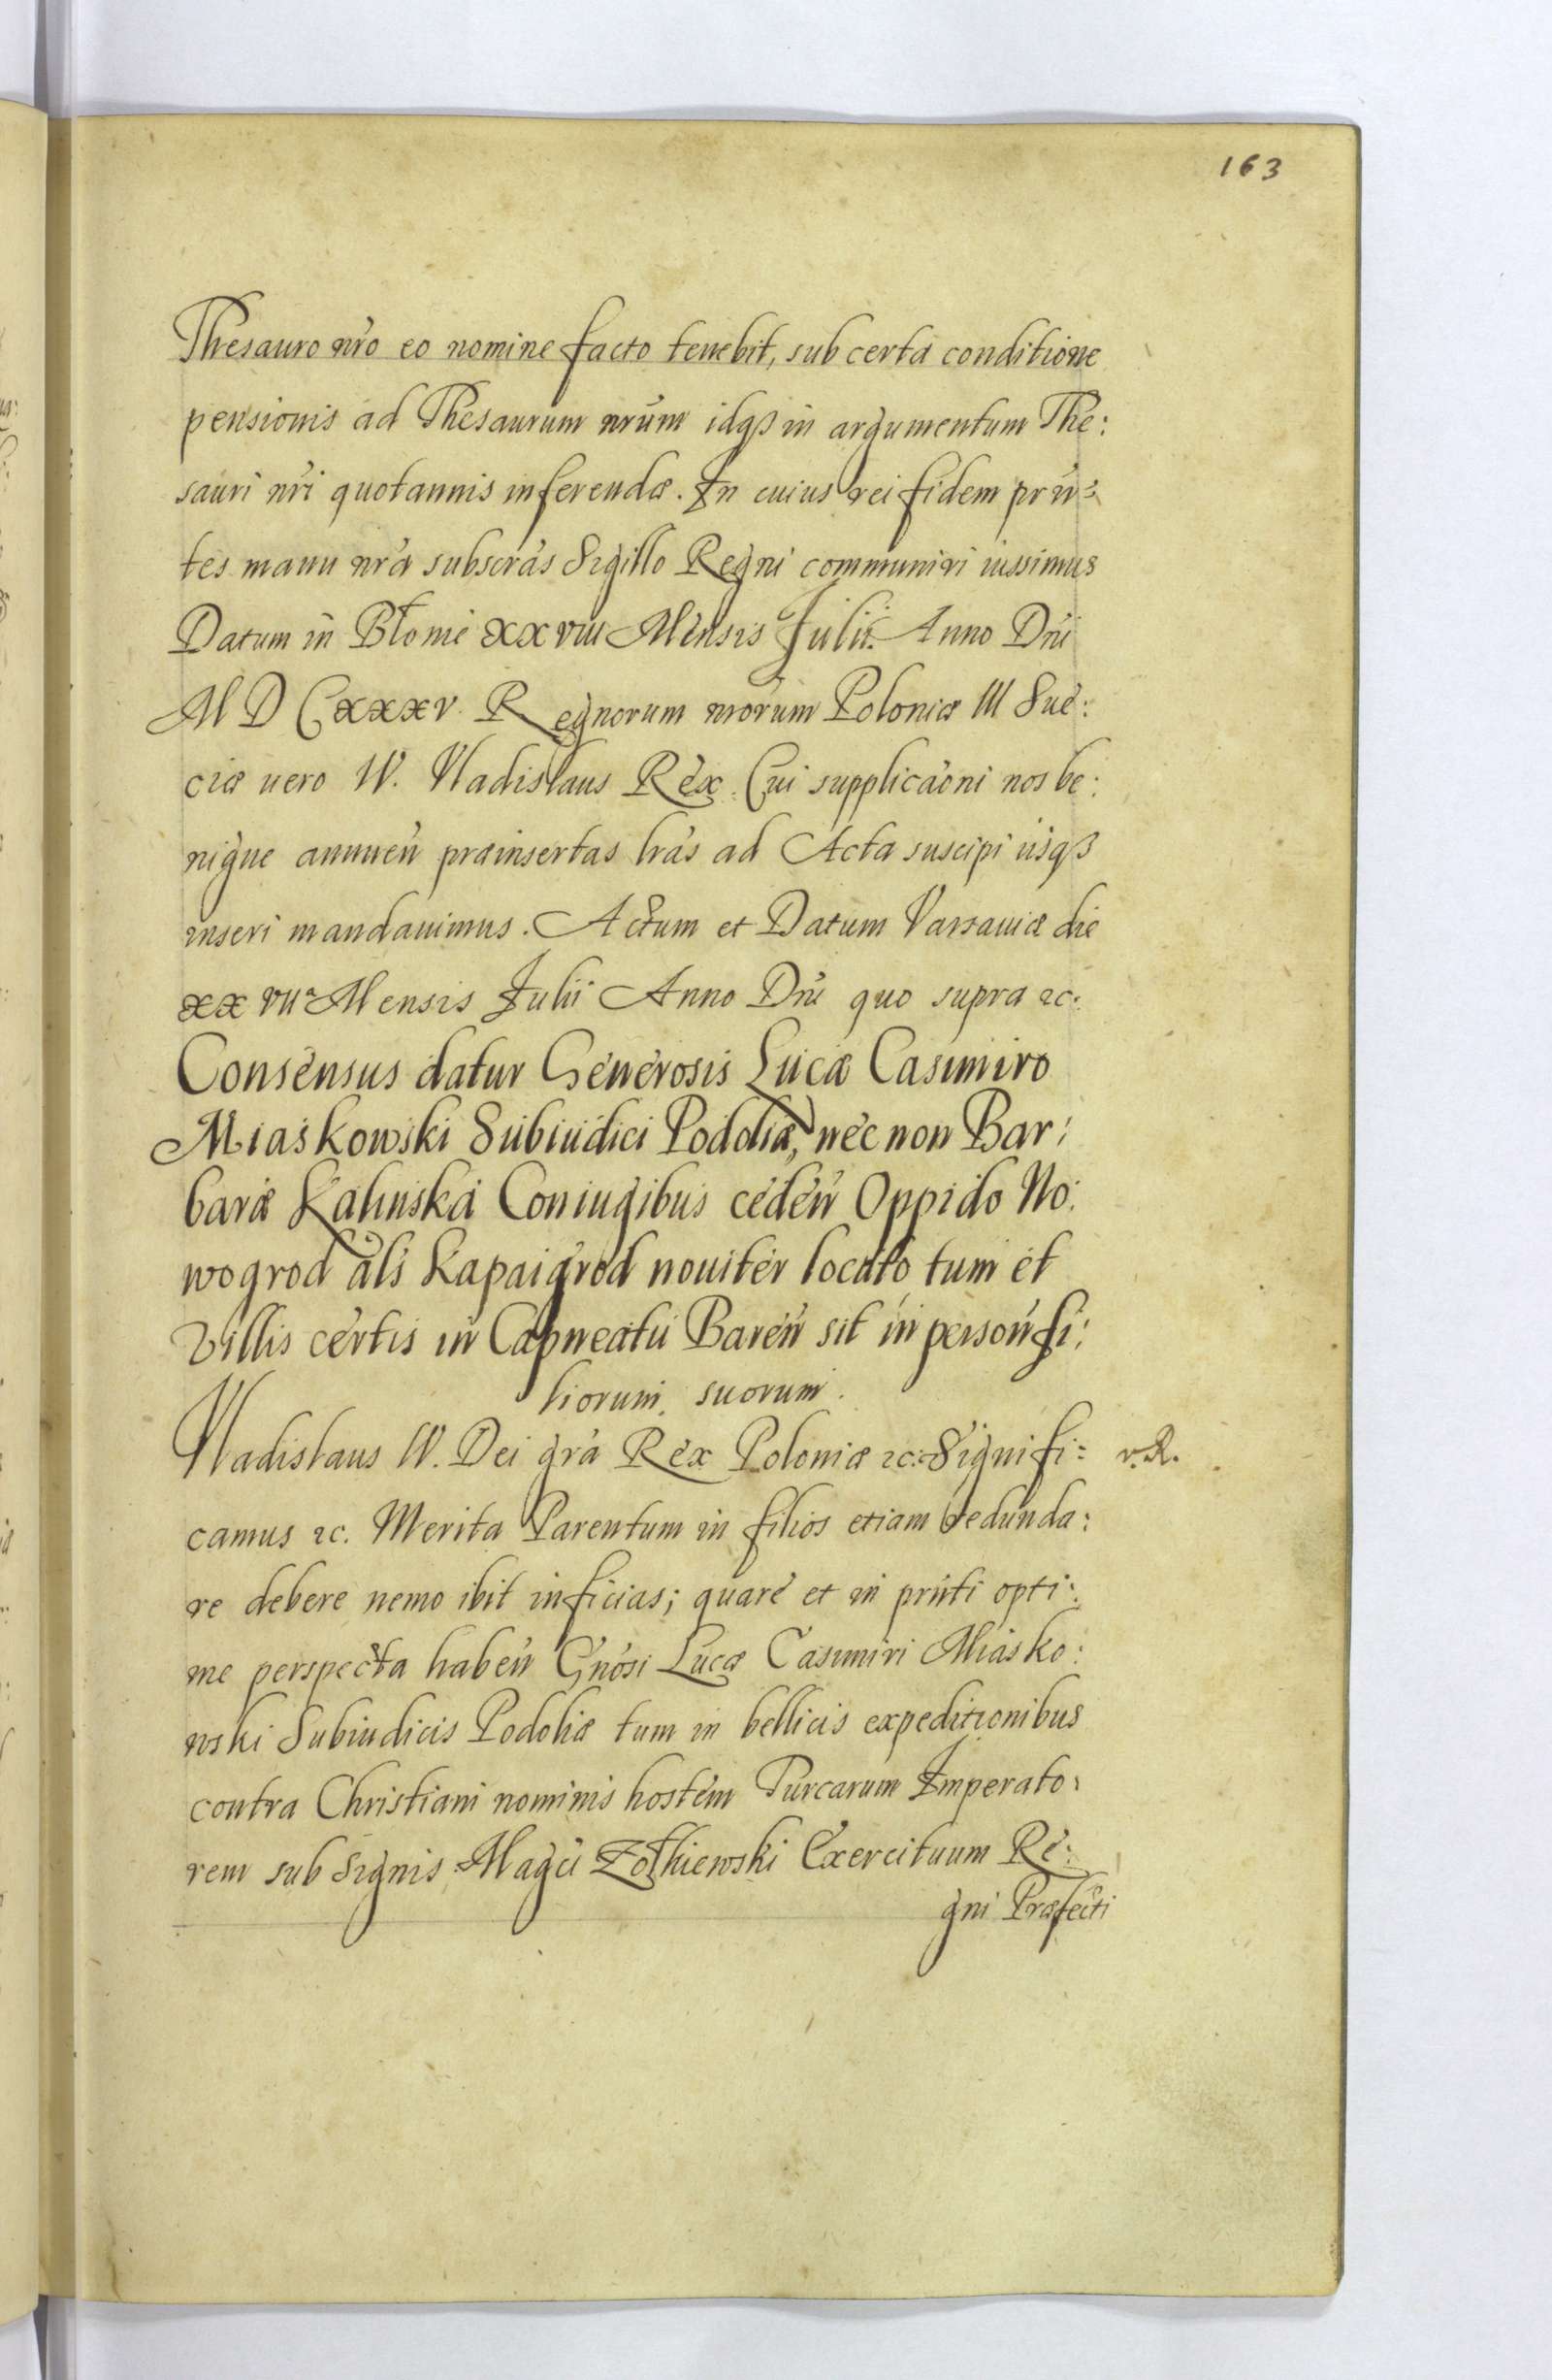 163
Thesauro nro eo nomine facto tenebit, sub certa conditione
pensionis ad Thesaurum nrum idqз in argumentum The:
sauri nri quotannis inferendæ. In cuius rei fidem prn=
tes manu nra subscras Sigillo Regni communiri iussimus
Datum in Błonie XXVIII Mensis Julii. Anno Dni
M D CXXXV. Regnorum nrorum Poloniæ III Sue:
ciæ uero IV. Vladislaus Rex. Cui supplicaoni nos be:
nigne annuen præinsertas lras ad Acta suscipi iisqз
inseri mandauimus. Actum et Datum Varsauiæ die
XXVIIa Mensis Julii Anno Dni quo supra ꝛc.
Consensus datur Generosis Lucæ Casimiro
Miaskowski Subiudici Podoliæ, nec non Bar:
baræ Kalinska Coniugibus ceden Oppido No:
wogrod als Kapaigrod nouiter locato tum et
Villis certis in Capneatu Baren sit in person fi:
liorum suorum.
Vladislaus IV. Dei gra Rex Poloniæ ꝛc: Signifi= v. R.
camus ꝛc. Merita Parentum in filios etiam redunda:
re debere nemo ibit inficias; quare et in prnti opti:
me perspecta haben Gnosi Lucæ Casimiri Miasko:
wski Subiudicis Podoliæ tum in bellicis expeditionibus
contra Christiani nominis hostem Turcarum Imperato:
rem sub Signis Magci Żołkiewski Exercituum Re:
gni Præfecti